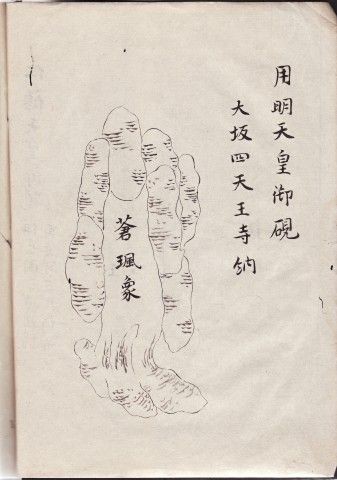 用明天皇御硯
大坂四天王寺納
蒼珮象